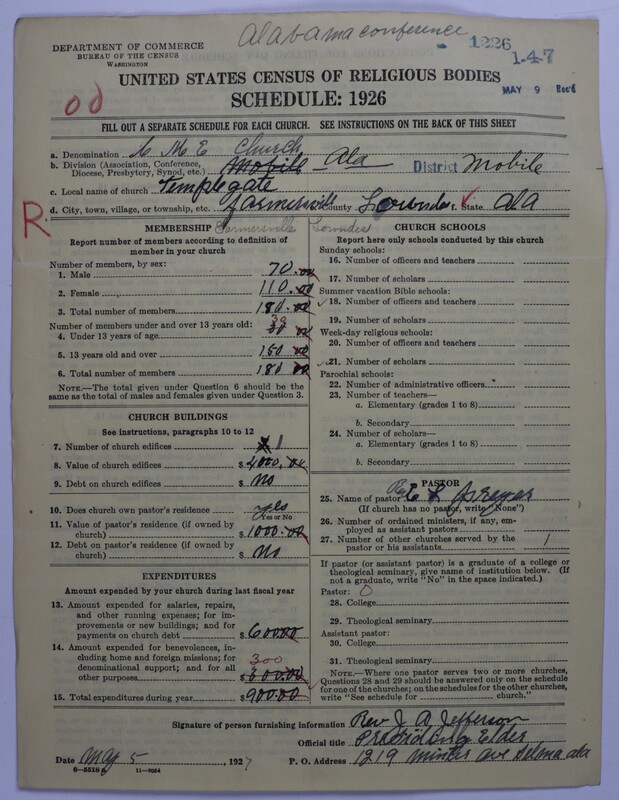 Alabama conference
1226
1-47
DEPARTMENT OF COMMERCE
BUREAU OF THE CENSUS
WASHINGTON
MAY 9 Rec'd
UNITED STATES CENSUS OF RELIGIOUS BODIES
SCHEDULE: 1926
FILL OUT A SEPARATE SCHEDULE FOR EACH CHURCH. SEE INSTRUCTIONS ON THE BACK OF THIS SHEET
a. Denomination C M E Church
b. Division (Association, Conference, Diocese, Presbytery, Synod, etc.) Mobile Ala District Mobile
c. Local name of church Templegate
d. City, town, village, or township, etc. Farmersville County Lowndes State Ala
R
MEMBERSHIP Farmersville Lowndes
Report number of members according to definition of
member in your church
Number of members, by sex:
1. Male 70.00
2. Female 110.00
3. Total number of members 180.00
Number of members under and over 13 years old: 30
4. Under 13 years of age 30 00
5. 13 years old and over 150 00
6. Total number of members 180 00
NOTE.—The total given under Question 6 should be
same as the total of males and females given under Question 3.
CHURCH BUILDINGS
See instructions, paragraphs 10 to 12
7. Number of church edifices 1
8. Value of church edifices $4000.00
9. Debt on church edifices $ No
10. Does church own pastor's residence? yes
Yes or No
11. Value of pastor's residence (if owned by
church) $1000.00
12. Debt on pastor's residence (if owned by
church) $ No
EXPENDITURES
Amount expended by your church during last fiscal year
13. Amount expended for salaries, repairs,
and other running expenses; for im-
provements or new buildings; and for
payments on church debt $600.00
14. Amount expended for benevolences, in-
cluding home and foreign missions; for
denominational support; and for all 300
other purposes $600.00
15. Total expenditures during year $900.00
CHURCH SCHOOLS
Report here only schools conducted by this church
Sunday schools:
16. Number of officers and teachers
17. Number of scholars
Summer vacation Bible schools:
18. Number of officers and teachers
19. Number of scholars
Week-day religious schools:
20. Number of officers and teachers
21. Number of scholars
Parochial schools:
22. Number of administrative officers
23. Number of teachers—
a. Elementary (grades 1 to 8)
b. Secondary
24. Number of scholars—
a. Elementary (grades 1 to 8)
b. Secondary
PASTOR
25. Name of pastor Rev
(If church has no pastor, write "None")
26. Number of ordained ministers, if any, em-
ployed as assistant pastors
27. Number of other churches served by the
pastor or his assistants 1
If pastor (or assistant pastor) is a graduate of a college or
theological seminary, give name of institution below. (If
not a graduate, write "No" in the space indicated.)
Pastor: O
28. College
29. Theological seminary
Assistant pastor:
30. College
31. Theological seminary
NOTE.—Where one pastor serves two or more churches,
Questions 28 and 29 should be answered only on the schedule
for one of the churches; on the schedules for the other churches,
write "See schedule for church."
Signature of person furnishing information Rev J. A. Jefferson
Official title Presiding Elder
Date May 5, 1927 P. O. Address 1219 ave Selma ala
6—5518 11—9034